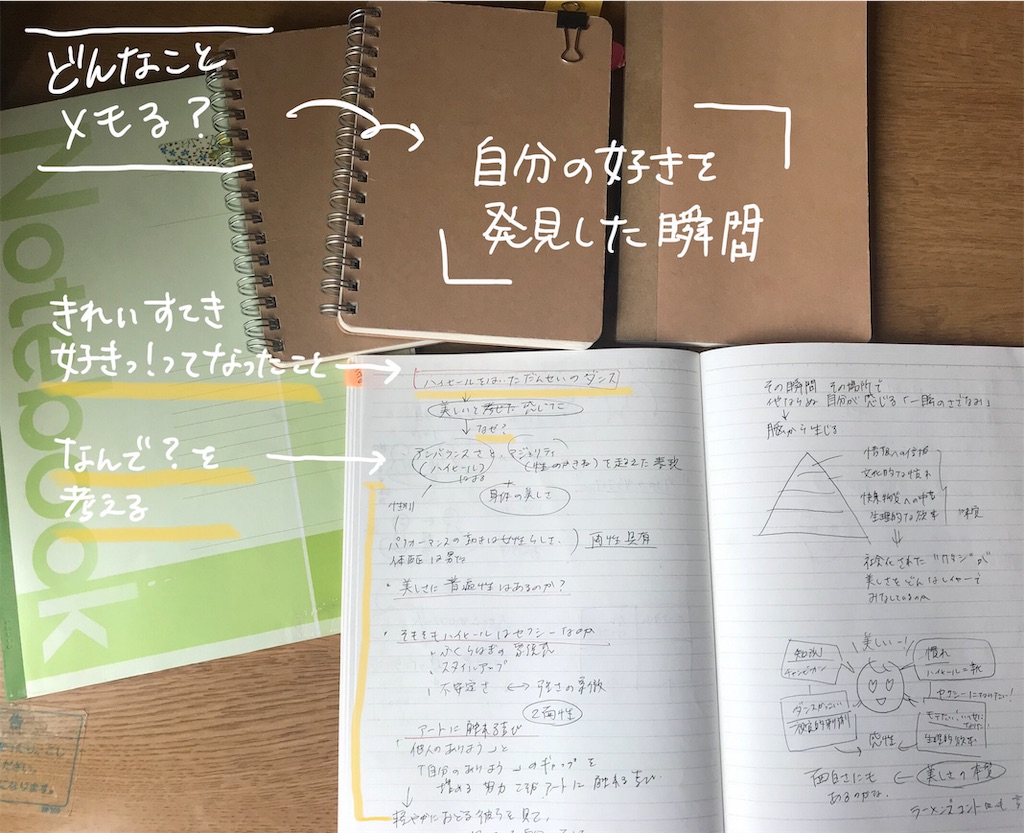 どんなこと
メモる?
自分の好きを
発見した瞬間
きれいすてき
好きっ!ってなったこと
なんで?を
考える
Notebook
ハイヒールをはいただんせいのダンス
美しいと考せた感じた
なぜ?
アンバランスさと、マジョリティ
(ハイヒール)
身体の美しさ
性別
パフォーマンスの動きは女性らしさ、
体配は男性
両性具有
・美しさに普遍性はあるのか?
・そもそもハイヒールはセクシーなのか
ふくらはぎの
スタイルアップ
不安定さ ↔ 強さの象徴
2面性
アートに触れる喜び
「他人のありよう」と
「自分のありよう」のギャップを
埋める努力こそがアートに触れる喜び
軽やかにおどる彼らを見て、
その瞬間 その場所で
他ならぬ自分が感じる「一瞬のさざなみ」
脳から生じる
情報への信頼
文化的な慣れ
快楽物質への中毒
生理的な欲求
社会化された
美しさをどんなレイヤーで
みなしているのか
美しいー!
知識
慣れ
ハイヒール=靴
セクシーになりたい!
ダンスかっこいい
視覚的刺激
モテたい!
生理的欲求
感性
面白さにも
あるのかな。
美しさの本質
ラーメンズコント
ください。
になります。